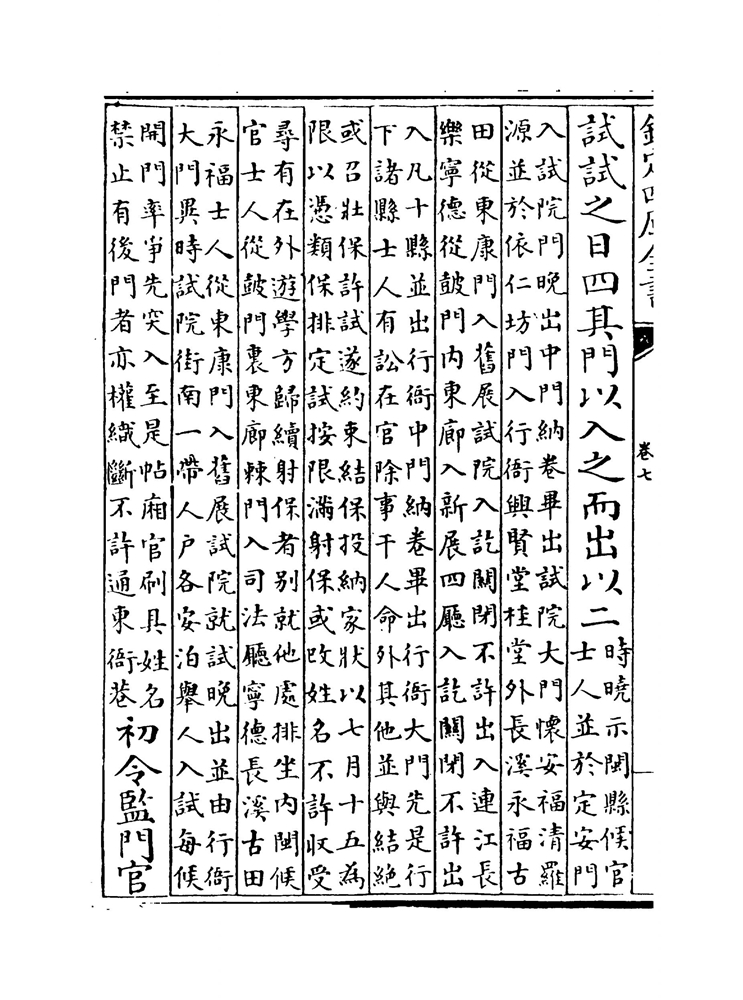 欽定四庫全書
卷七
試試之日四其門以入之而出以二
時曉示閩縣候官
士人並於定安門
入試院門晚出中門納卷畢出試院大門懷安福清羅
源並於依仁坊門入行衙興賢堂桂堂外長溪永福古
田從東康門入舊展試院入訖關閉不許出入連江長
樂寧德從鼓門内東廊入新展四廳入訖關閉不許出
入凡十縣並出行衙中門納卷畢出行衙大門先是行
下諸縣士人有訟在官除事干人命外其他並與結絶
或召壯保許試遂約束結保投納家狀以七月十五為
限以憑類保排定試按限滿射保或改姓名不許收受
尋有在外遊學方歸續射保者別就他處排坐内閩候
官士人從鼓門裏東廊棘門入司法廳寧德長溪古田
永福士人從東康門入舊展試院就試晚出並由行衙
大門異時試院街南一帶人户各安泊舉人入試每候
開門率爭先突入至是帖廂官刷具姓名
禁止有後門者亦權織斷不許通東衙巷
初令監門官